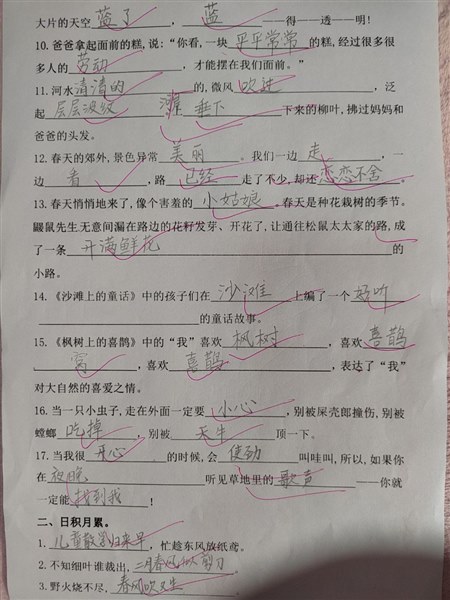 大片的天空蓝了,蓝——得——透——明!
10.爸爸拿起面前的糕,说:“你看,一块平平常常的糕,经过很多很
多人的劳动,才能摆在我们面前。”
11.河水清清的的,微风吹过,泛
起层层波纹 垂下下来的柳叶,拂过妈妈和
爸爸的头发。
12.春天的郊外,景色异常美丽。我们一边走,一
边看,路已经走了不少,却还恋恋不舍。
13.春天悄悄地来了,像个害羞的小姑娘。春天是种花栽树的季节。
鼹鼠先生无意间漏在路边的花籽发芽、开花了,让通往松鼠太太家的路,成
了一条开满鲜花的
小路。
14.《沙滩上的童话》中的孩子们在沙滩上编了一个好听
的童话故事。
15.《枫树上的喜鹊》中的“我”喜欢枫树,喜欢喜鹊
窝,喜欢喜鹊,表达了“我”
对大自然的喜爱之情。
16.当一只小虫子,走在外面一定要小心,别被屎壳郎撞伤,别被
螳螂吃掉,别被天牛顶一下。
17.当我很开心的时候,会使劲叫哇叫,所以,如果你
在夜晚听见草地里的歌声——你就
一定能找到我!
二、日积月累。
1.儿童散学归来早,忙趁东风放纸鸢。
2.不知细叶谁裁出,二月春风似剪刀。
3.野火烧不尽,春风吹又生